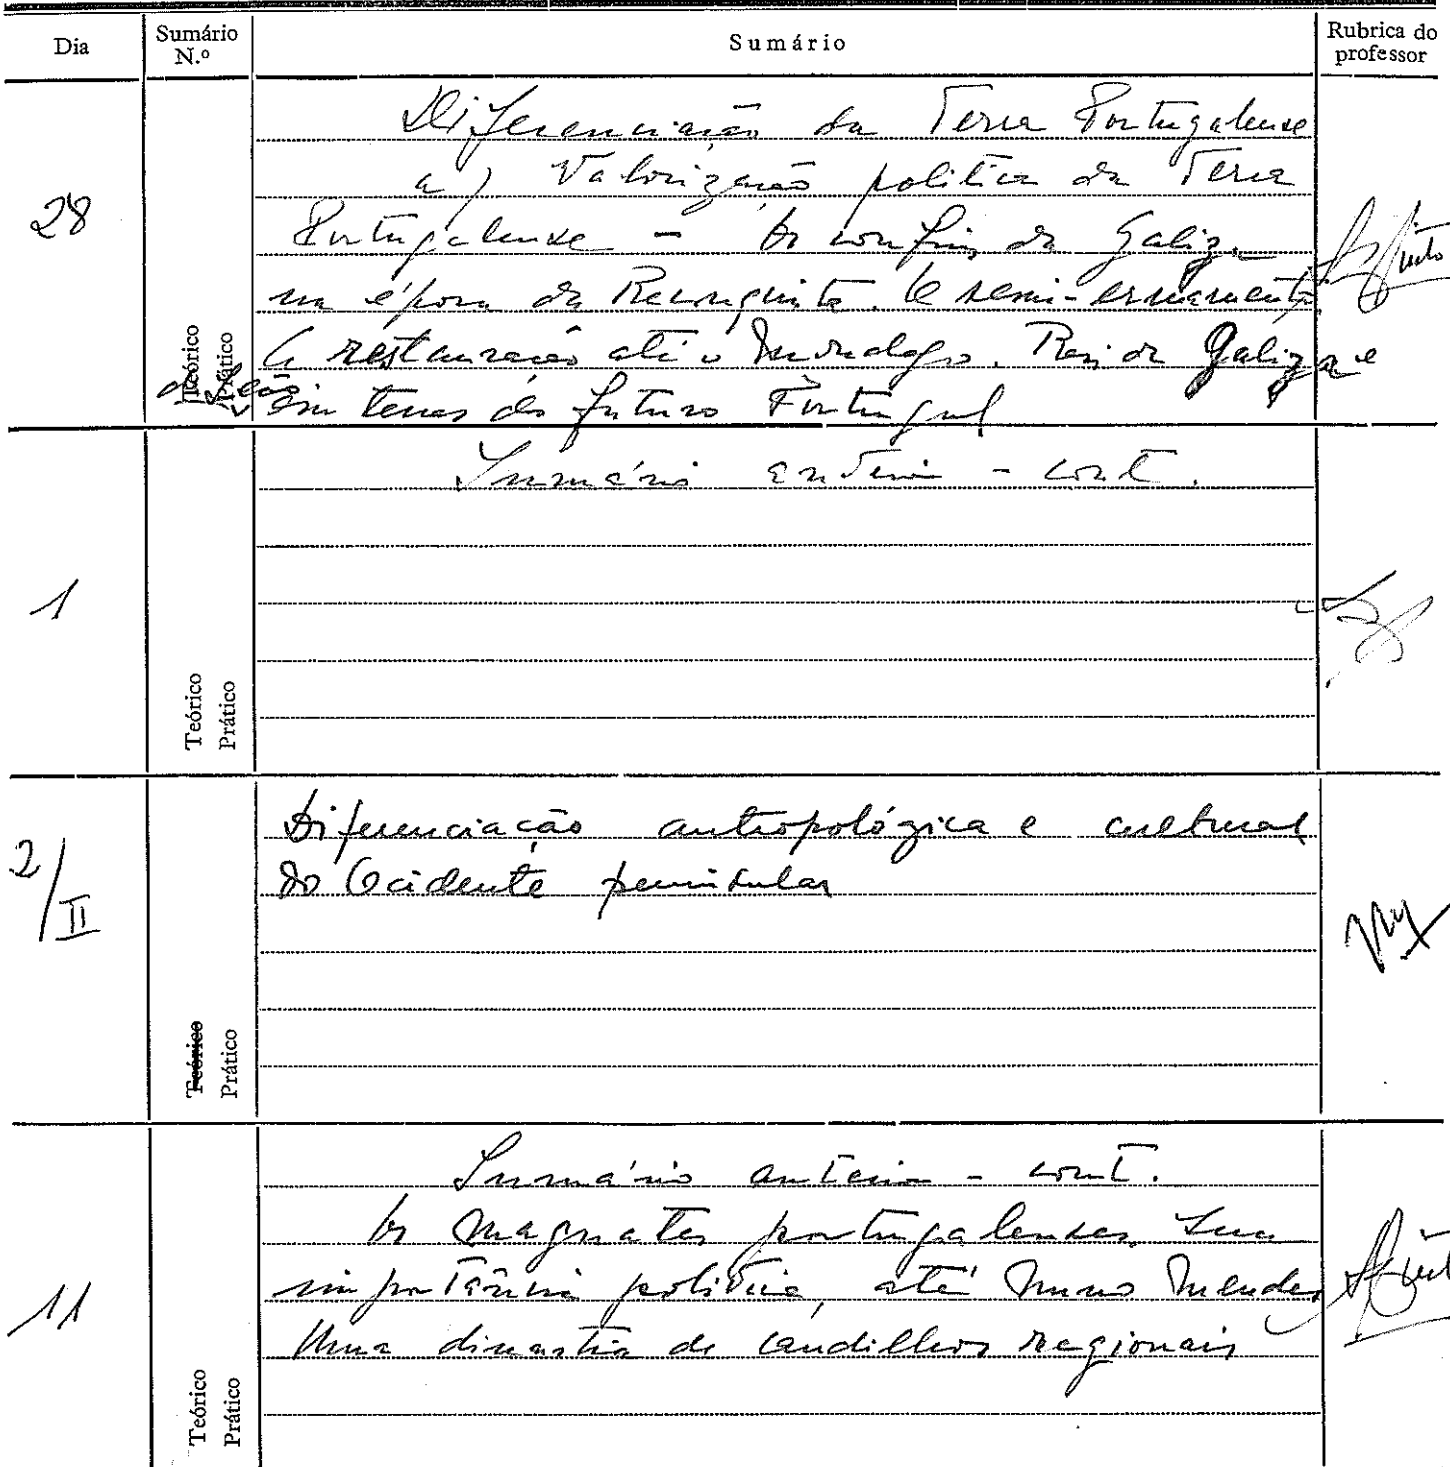 Dia
Sumário N.º
Sumário
Rubrica do professor
28
Teórico
Prático
Diferenciação da Terra Portugalense
a) Valorização politica da Terra
Portugalense - Os confins da Galiza
na época da Reconquista. O semi-ermamento.
A restauração até o Mondego. Reis da Galiza e
de Leão em terras do futuro Portugal
1
Teórico
Prático
Sumário anterior - cont.
2/II
Teórico
Prático
Diferenciação antropológica e cultural
do Ocidente peninsular
11
Teórico
Prático
Sumário anterior - cont.
Os magnates portugalenses. Sua
importância politica, até Nuno Mendes
Uma dinastia de caudilhos regionais